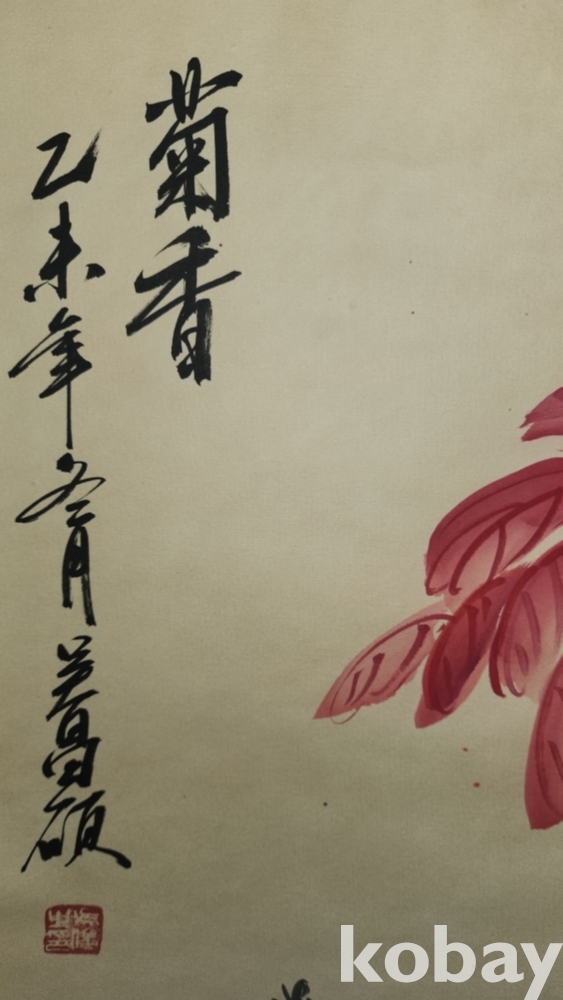 菊香
乙未年冬月吴昌硕
kobay